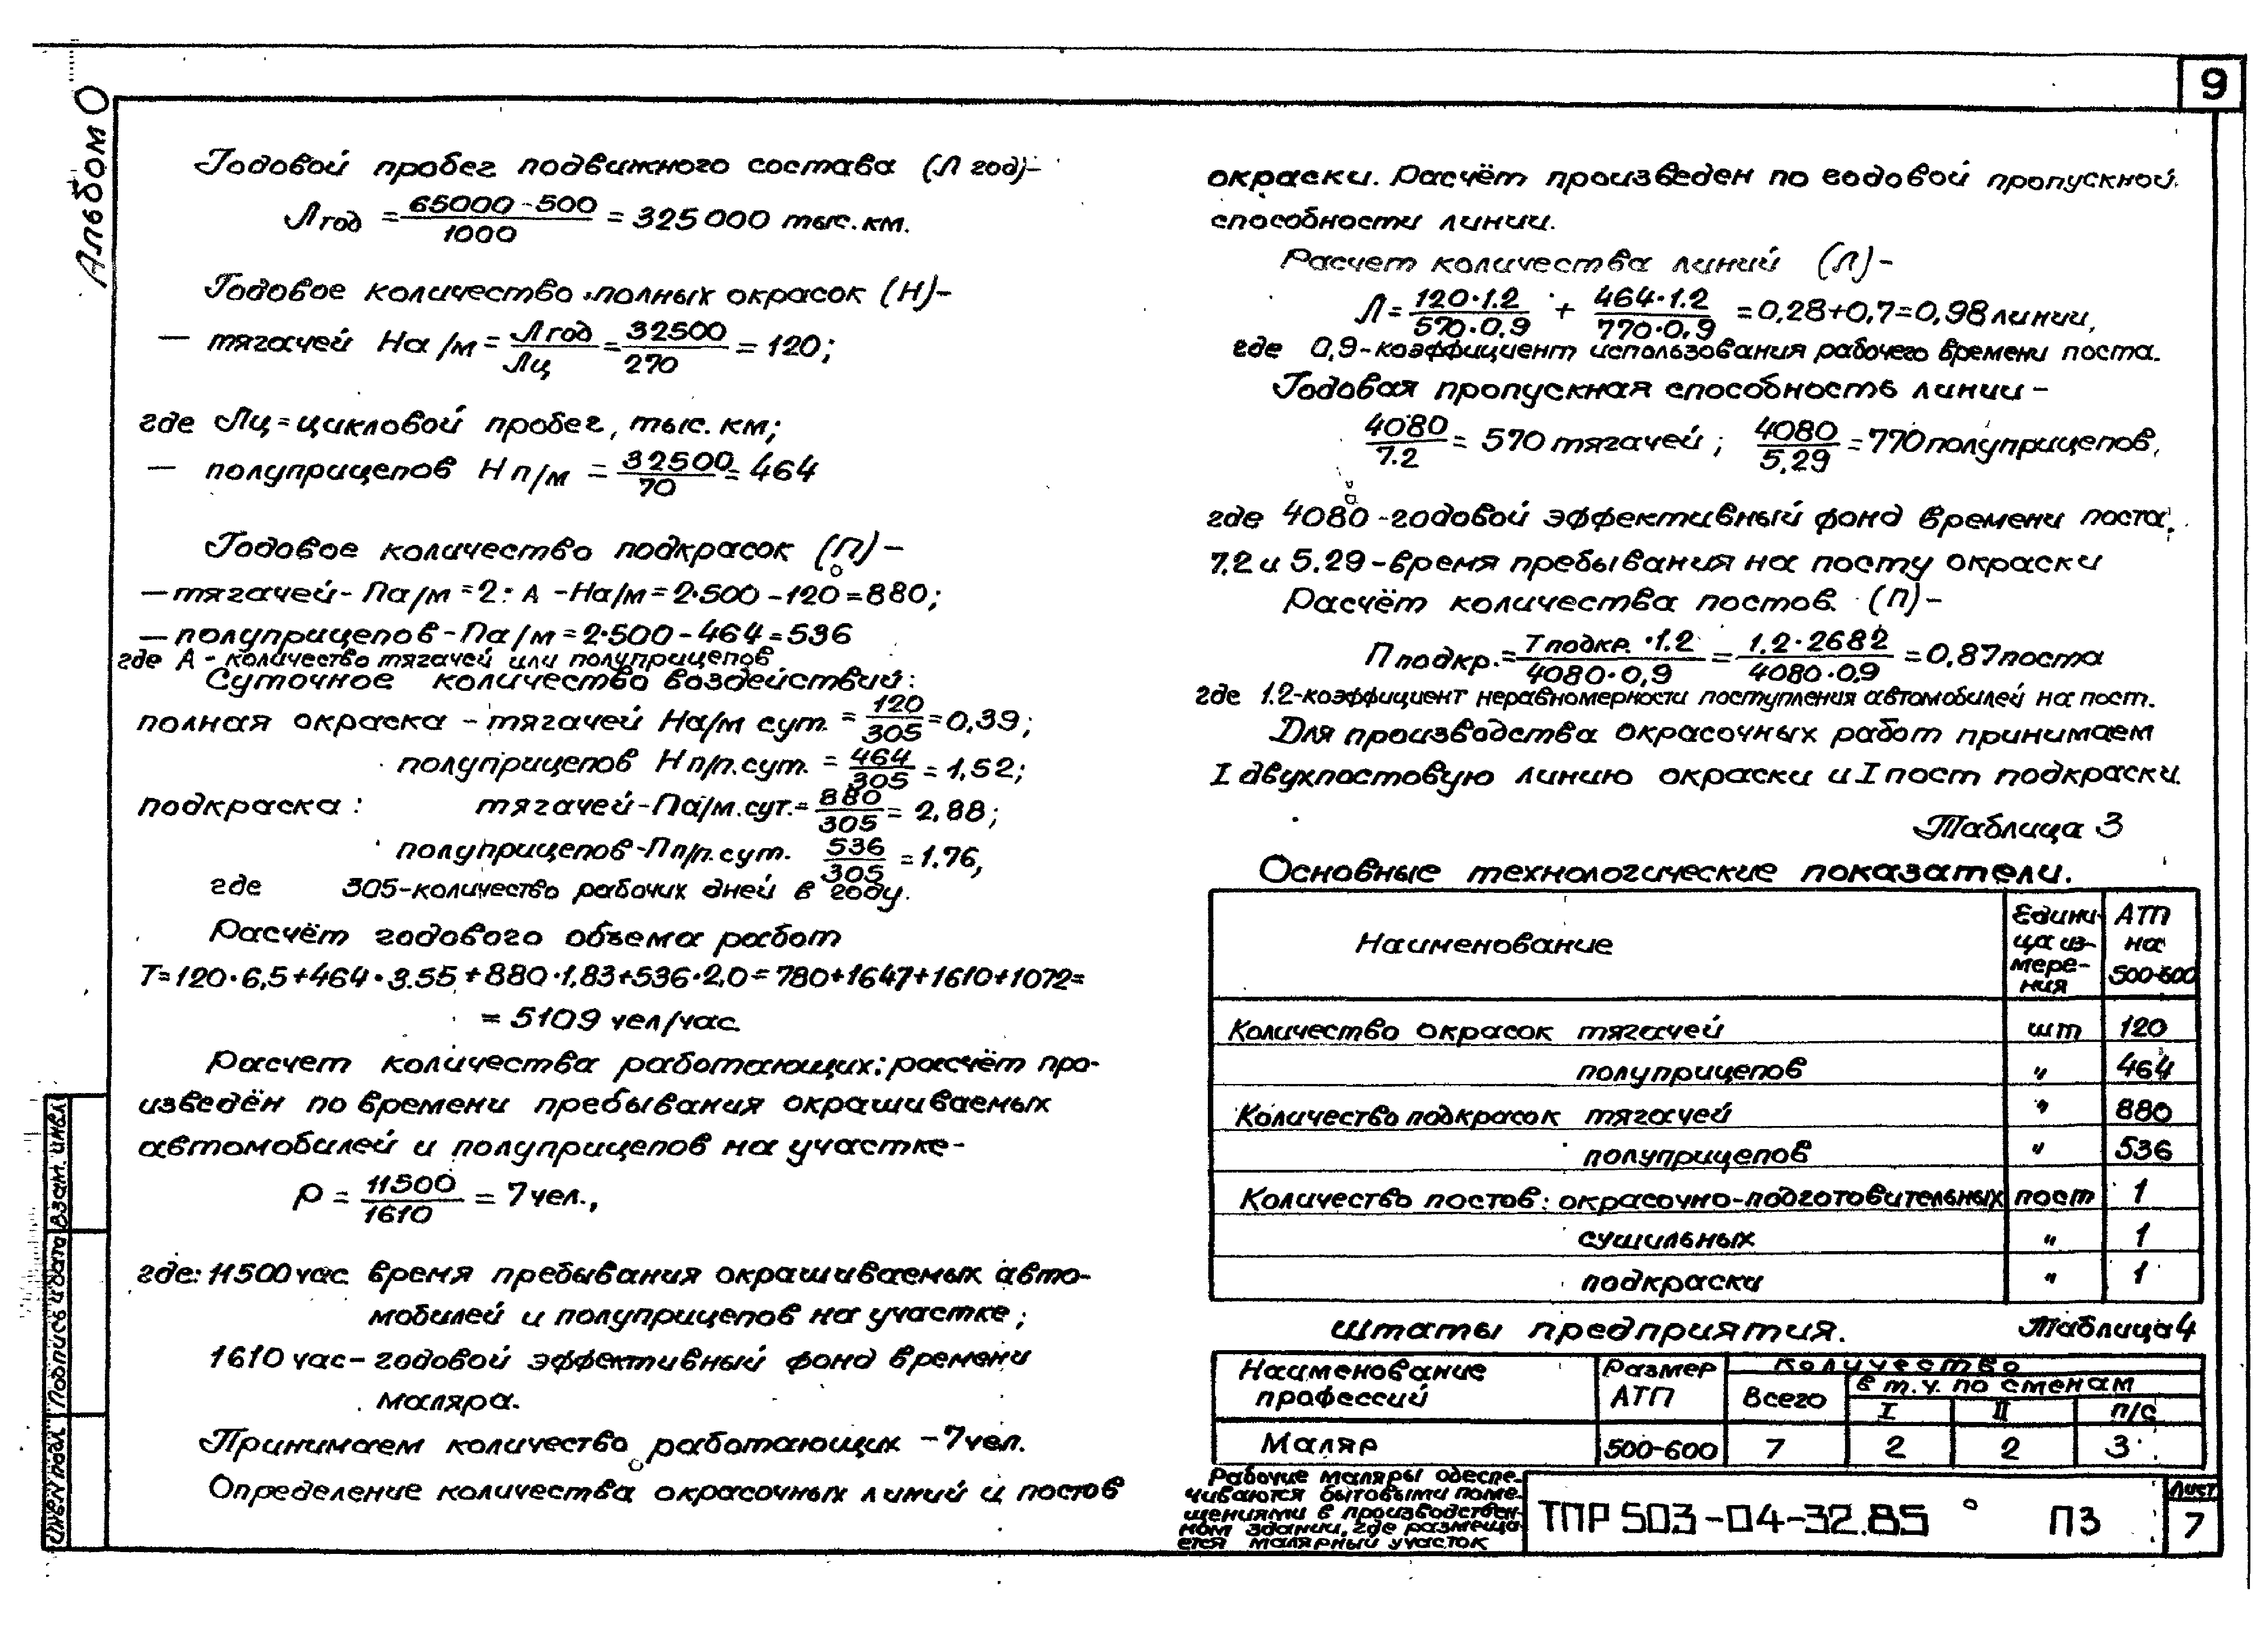 9
Альбом 0
Годовой пробег подвижного состава (Л год)-
Лгод = 65000-500 / 1000 = 325000 тыс. км.
Годовое количество полных окрасок (Н)-
— тягачей На/м = Лгод / Лц = 32500 / 270 = 120;
где Лц = цикловой пробег, тыс. км;
— полуприцепов Нп/м = 32500 / 70 = 464
Годовое количество подкрасок (П)-
— тягачей - Па/м = 2·А - На/м = 2·500 - 120 = 880;
— полуприцепов - Па/м = 2·500 - 464 = 536
где А - количество тягачей или полуприцепов
Суточное количество воздействий:
полная окраска - тягачей На/м сут. = 120 / 305 = 0,39;
полуприцепов Нп/п.сут. = 464 / 305 = 1,52;
подкраска: тягачей - Па/м.сут. = 880 / 305 = 2,88;
полуприцепов - Пп/п.сут. 536 / 305 = 1.76,
где 305-количество рабочих дней в году.
Расчёт годового объема работ
Т=120·6,5+464·3.55+880·1,83+536·2,0=780+1647+1610+1072=
= 5109 чел/час.
Расчет количества работающих: расчёт про-
изведён по времени пребывания окрашиваемых
автомобилей и полуприцепов на участке-
Р = 11500 / 1610 = 7 чел.,
где: 11500 час. время пребывания окрашиваемых авто-
мобилей и полуприцепов на участке;
1610 час - годовой эффективный фонд времени
маляра.
Принимаем количество работающих - 7 чел.
Определение количества окрасочных линий и постов
окраски. Расчёт произведен по годовой пропускной
способности линии.
Расчет количества линий (Л)-
Л = 120·1.2 / 570·0,9 + 464·1.2 / 770·0,9 = 0,28+0,7=0,98 линии,
где 0,9-коэффициент использования рабочего времени поста.
Годовая пропускная способность линии-
4080 / 7.2 = 570 тягачей; 4080 / 5,29 = 770 полуприцепов,
где 4080 - годовой эффективный фонд времени поста,
7.2 и 5.29 - время пребывания на посту окраски
Расчёт количества постов (П)-
Пподкр. = Тподкр. ·1.2 / 4080·0,9 = 1.2·2682 / 4080·0,9 = 0,87 поста
где 1.2-коэффициент неравномерности поступления автомобилей на пост.
Для производства окрасочных работ принимаем
I двухпостовую линию окраски и I пост подкраски.
Таблица 3
Основные технологические показатели.
Наименование Едини- ца из- мере- ния АТП на 500-600
Количество окрасок тягачей шт 120
полуприцепов " 464
Количество подкрасок тягачей " 880
полуприцепов " 536
Количество постов: окрасочно-подготовительных пост 1
сушильных " 1
подкраски " 1
Штаты предприятия. Таблица 4
Наименование профессий Размер АТП Количество
Всего в т.ч. по сменам
I II п/с
Маляр 500-600 7 2 2 3
Рабочие маляры обеспе-
чиваются бытовыми поме-
щениями в производствен-
ном здании, где размеща-
ется малярный участок
ТПР 503-04-32.85 ПЗ
Лист
7
Взам. инв.
Подпись и дата
Инв. N подл